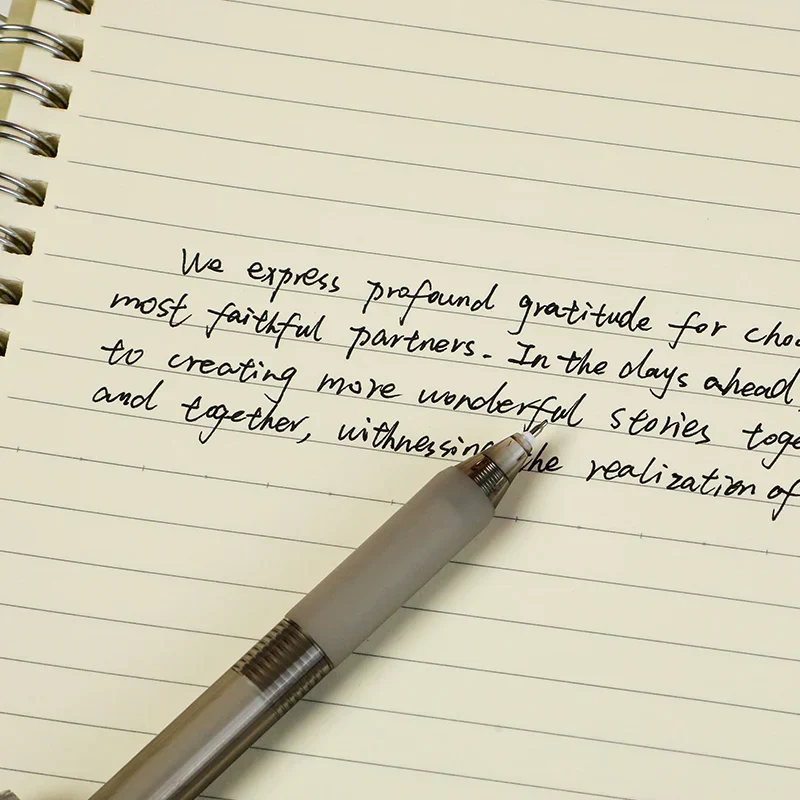 We express profound gratitude for choo
most faithful partners. In the days ahead,
to creating more wonderful stories toge
and together, withnessing the realization of